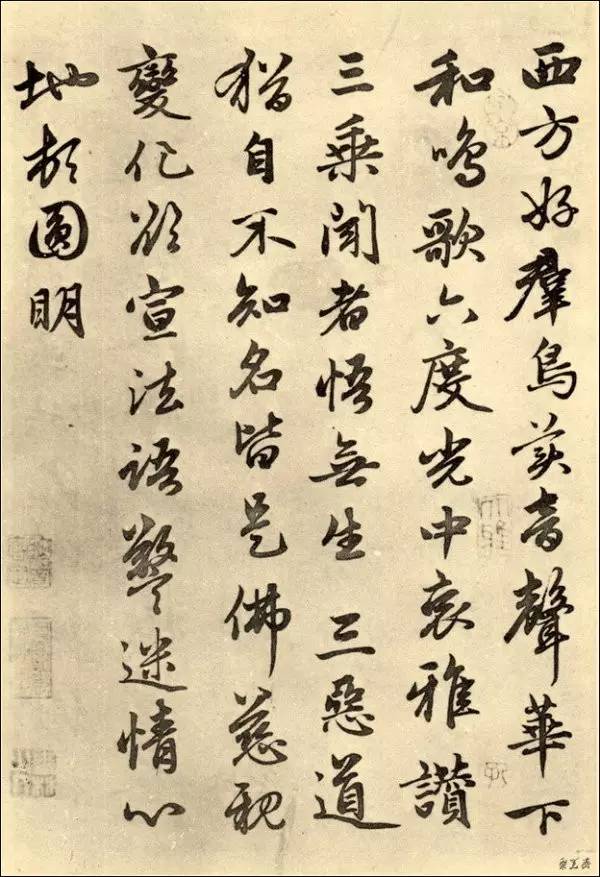 西方好羣鳥美音聲華下
和鳴歌六度光中哀雅讚
三乗聞者悟無生 三惡道
猶自不知名皆是佛慈親
變化欲宣法語警迷情心
地頓圓明